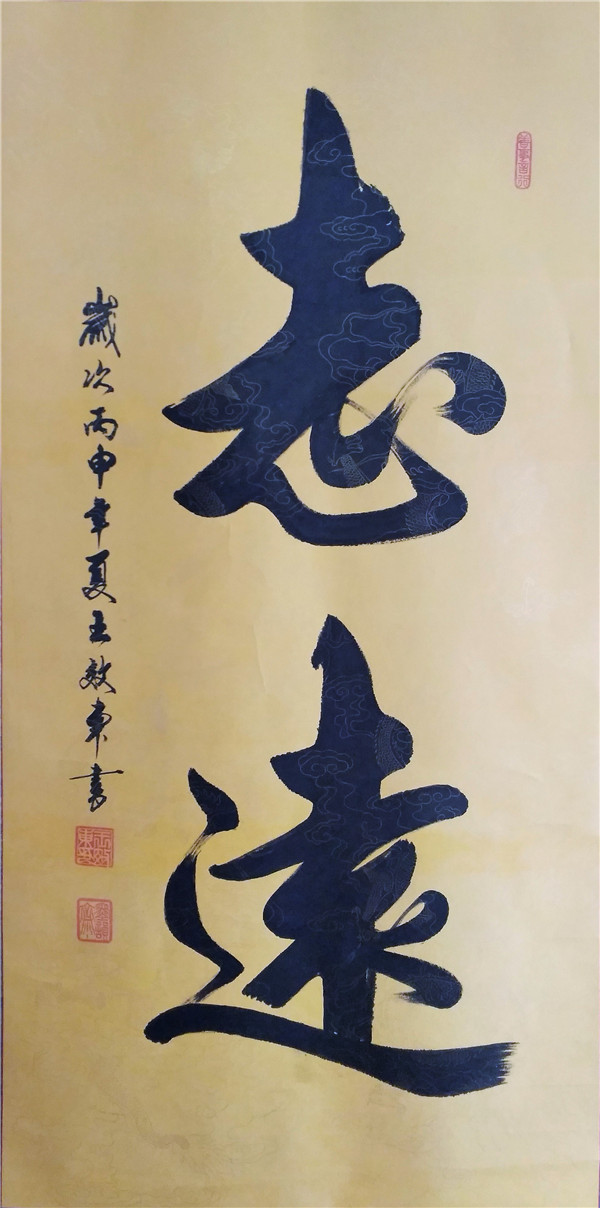 志遠
歲次丙申年夏王效東書